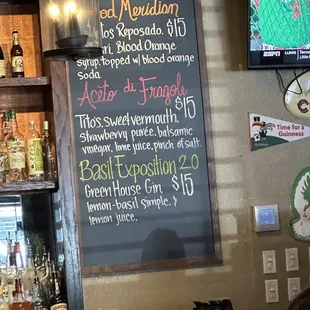 od Meridian
$15
los Reposado,
ri, Blood Orange
syrup, topped w/ blood orange
soda
Aceto di Fragole
$15
Tito's, sweet vermouth,
strawberry purée, balsamic
vinegar, lime juice, pinch of salt.
Basil Exposition 2.0
Green House Gin, $15
lemon-basil simple, &
lemon juice.
ESPN
Time for a
Guinness